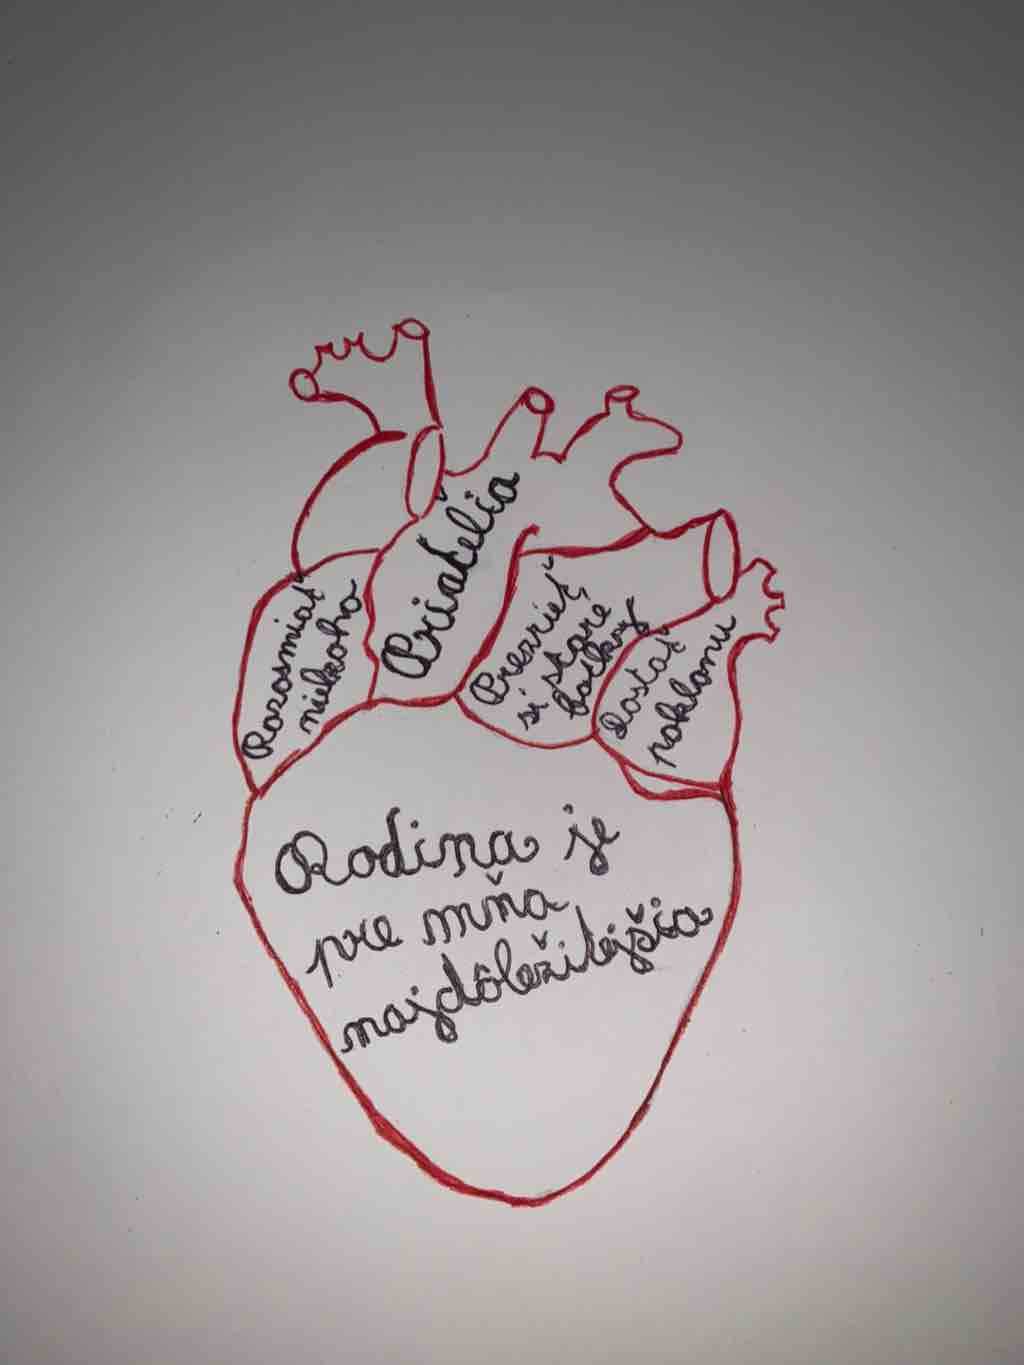 Rozosmiať
niekoho
Priatelia
Prezrieť
si staré
fotky
Dostať
poklonu
Rodina je
pre mňa
najdôležitejšia